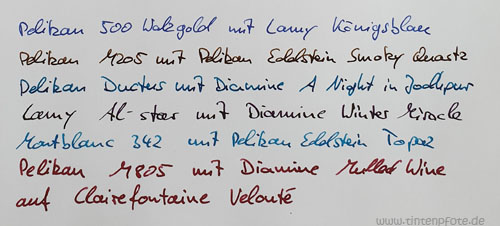 Pelikan 500 Walzgold mit Lamy Königsblau
Pelikan M205 mit Pelikan Edelstein Smoky Quartz
Pelikan Ductus mit Diamine A Night in Jodhpur
Lamy Al-star mit Diamine Winter Miracle
Montblanc 342 mit Pelikan Edelstein Topaz
Pelikan M805 mit Diamine Mulled Wine
auf Clairefontaine Velouté
www.tintenpfote.de